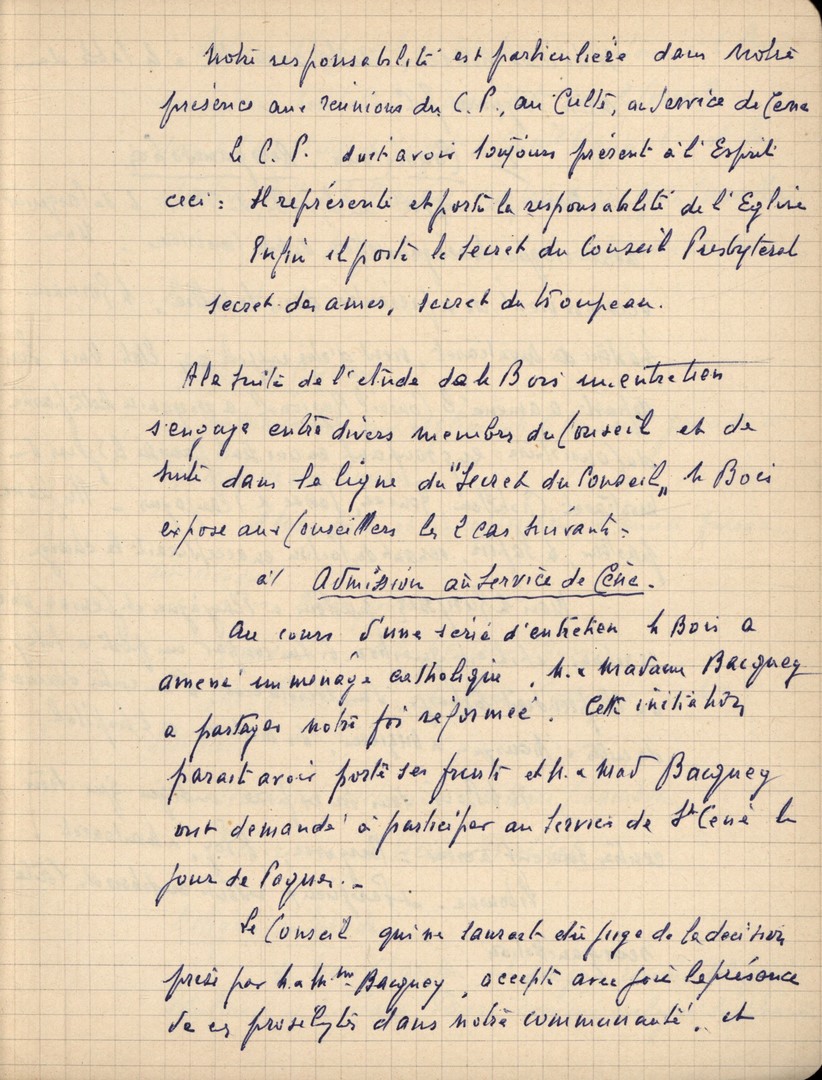 Notre responsabilité est particulière dans notre
présence aux réunions du C.P., au Culte, au Service de Cène
Le C. P. doit avoir toujours présent à l'Esprit
ceci : Il représente et porte la responsabilité de l'Eglise
Enfin il porte le secret du Conseil Presbyteral
secret des ames, secret du troupeau.
A la suite de l'etude de M Bois un entretien
s'engage entre divers membres du Conseil et de
suite dans la ligne du "Secret du Conseil" M Bois
expose aux Conseillers les 2 cas suivants :
a/ Admission au Service de Cène.
Au cours d'une serie d'entretien M Bois a
amené un menage catholique, M. & Madame Bacquey
a partager notre foi réformée. Cette initiation
parait avoir porté ses fruits et M. & Mad Bacquey
ont demandé à participer au Service de Ste Cène le
jour de Paques. -
Le Conseil qui ne saurait être juge de la decision
prise par M. & Mme Bacquey, accepte avec joie la présence
de ces proselytes dans notre communauté, et